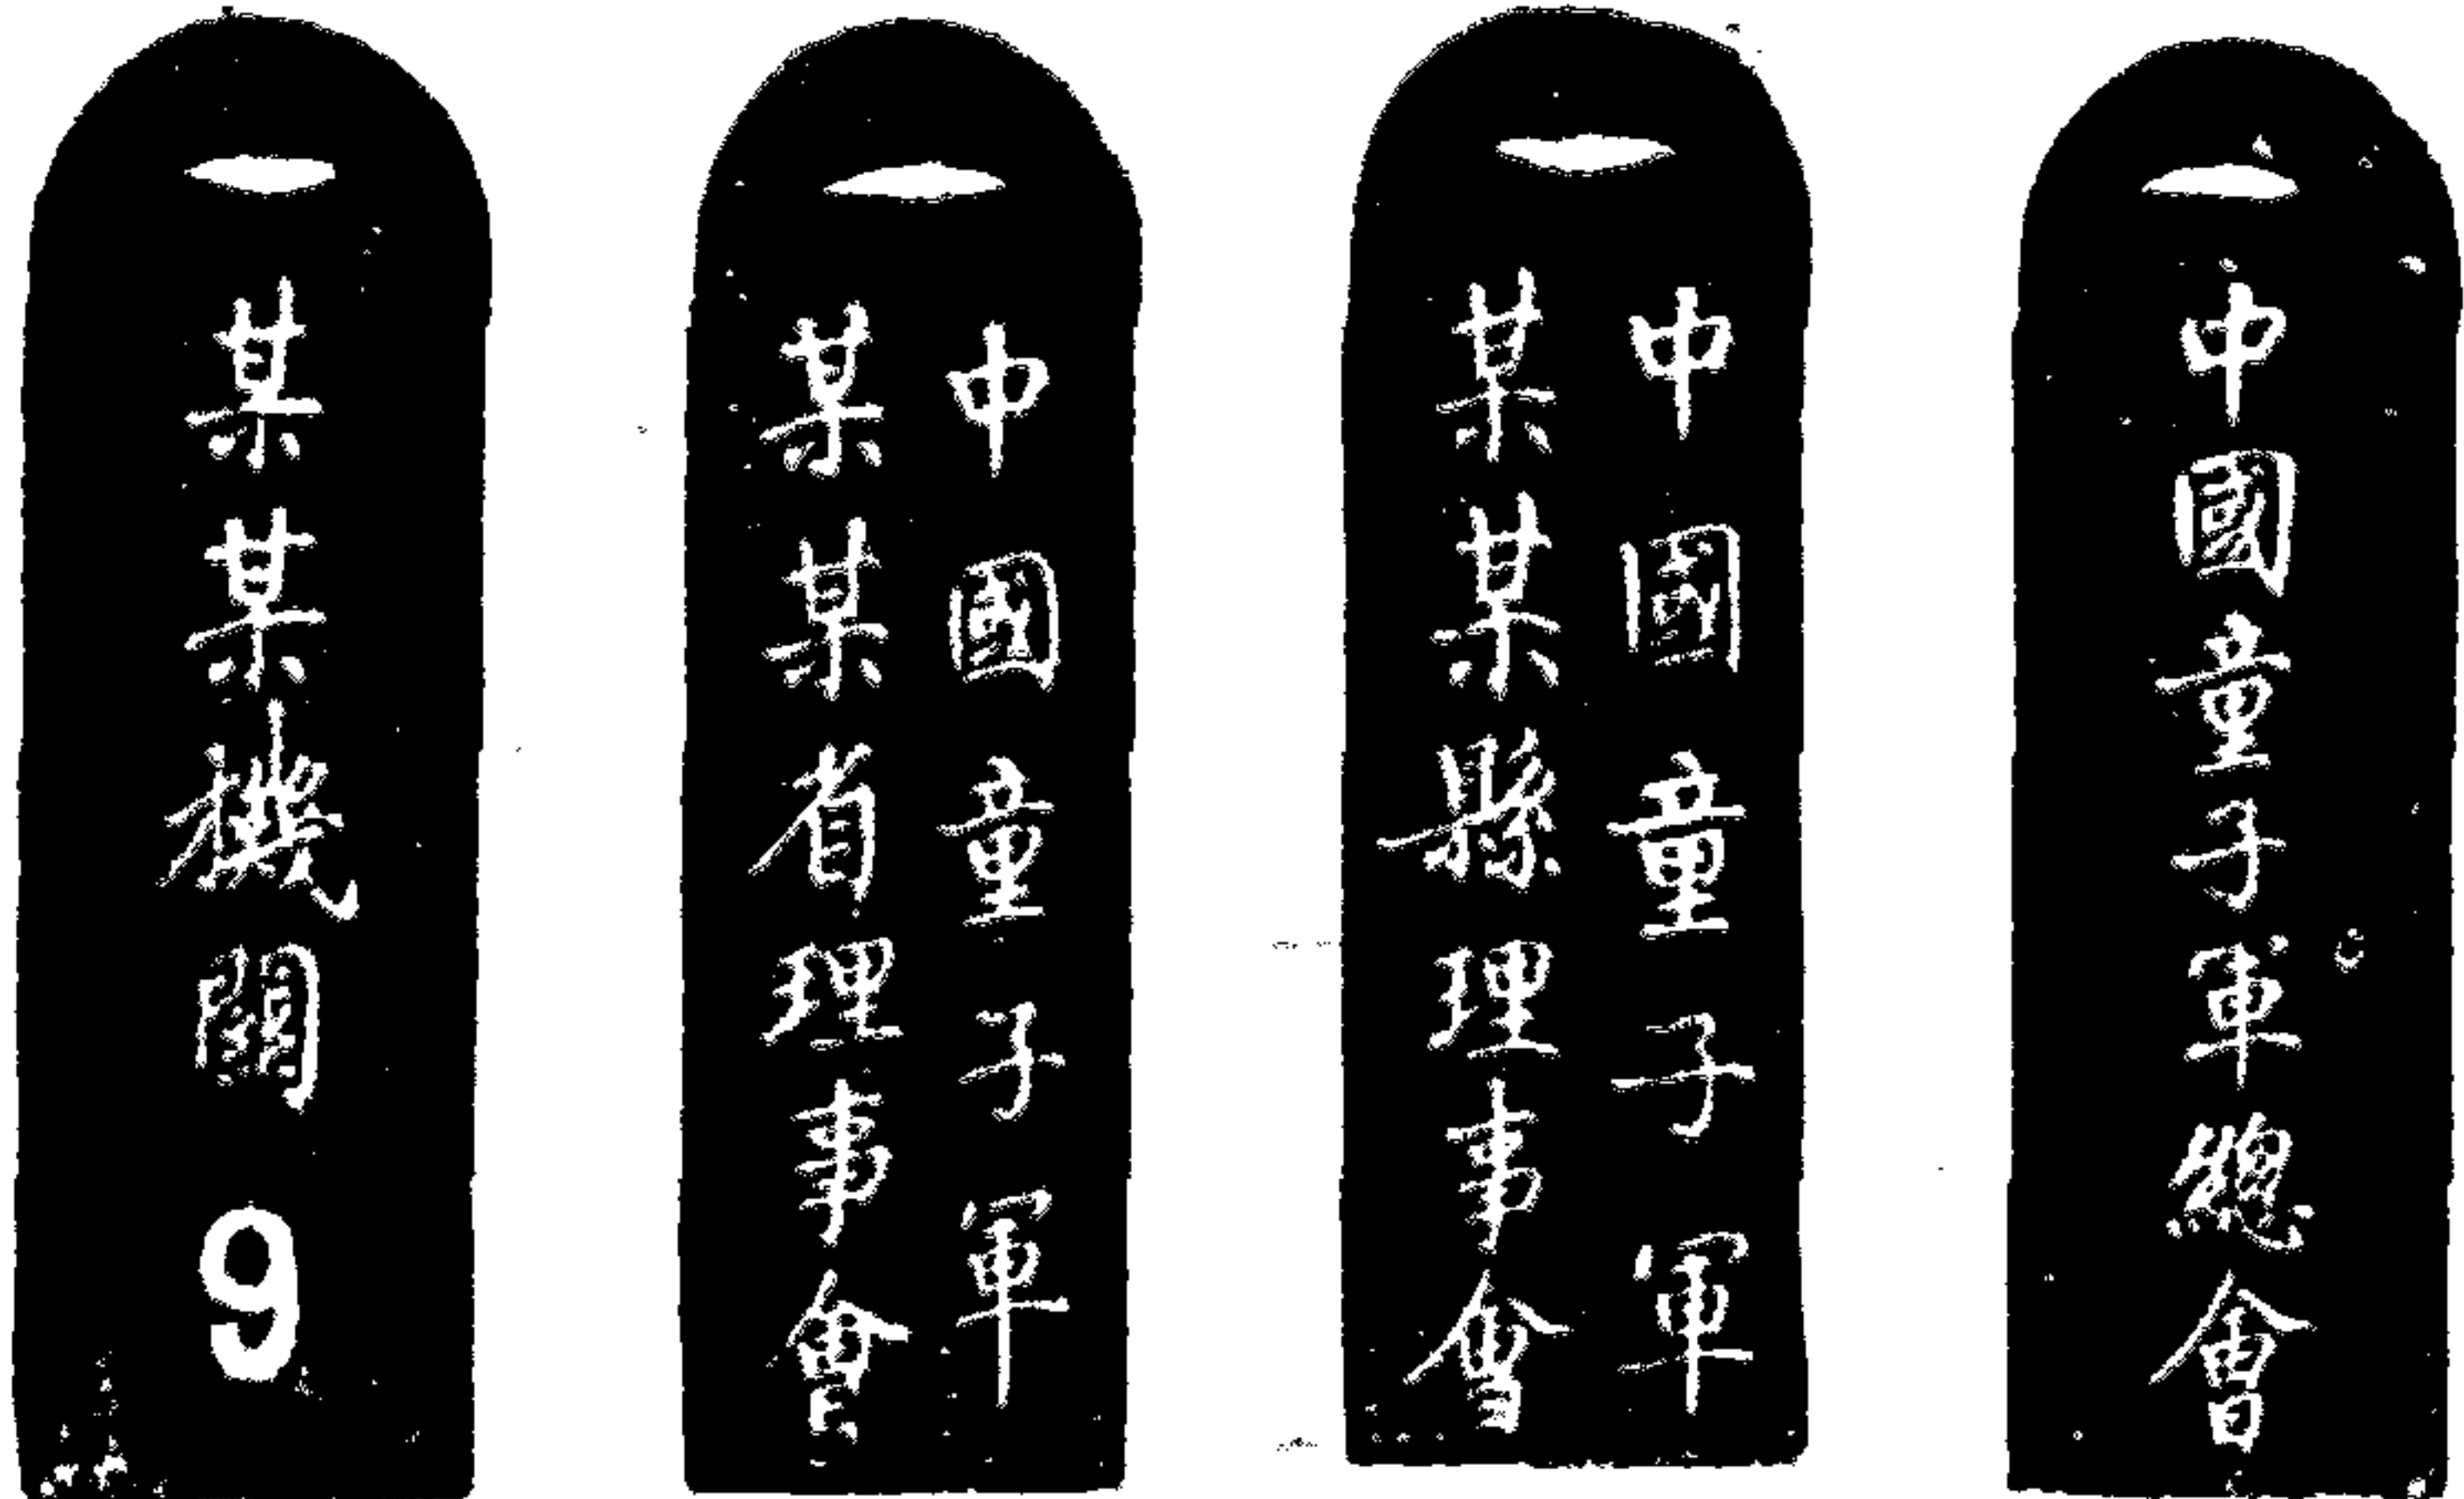 中國童子軍總會
中國童子軍
某某縣理事會
中國童子軍
某某省理事會
某某機關
9